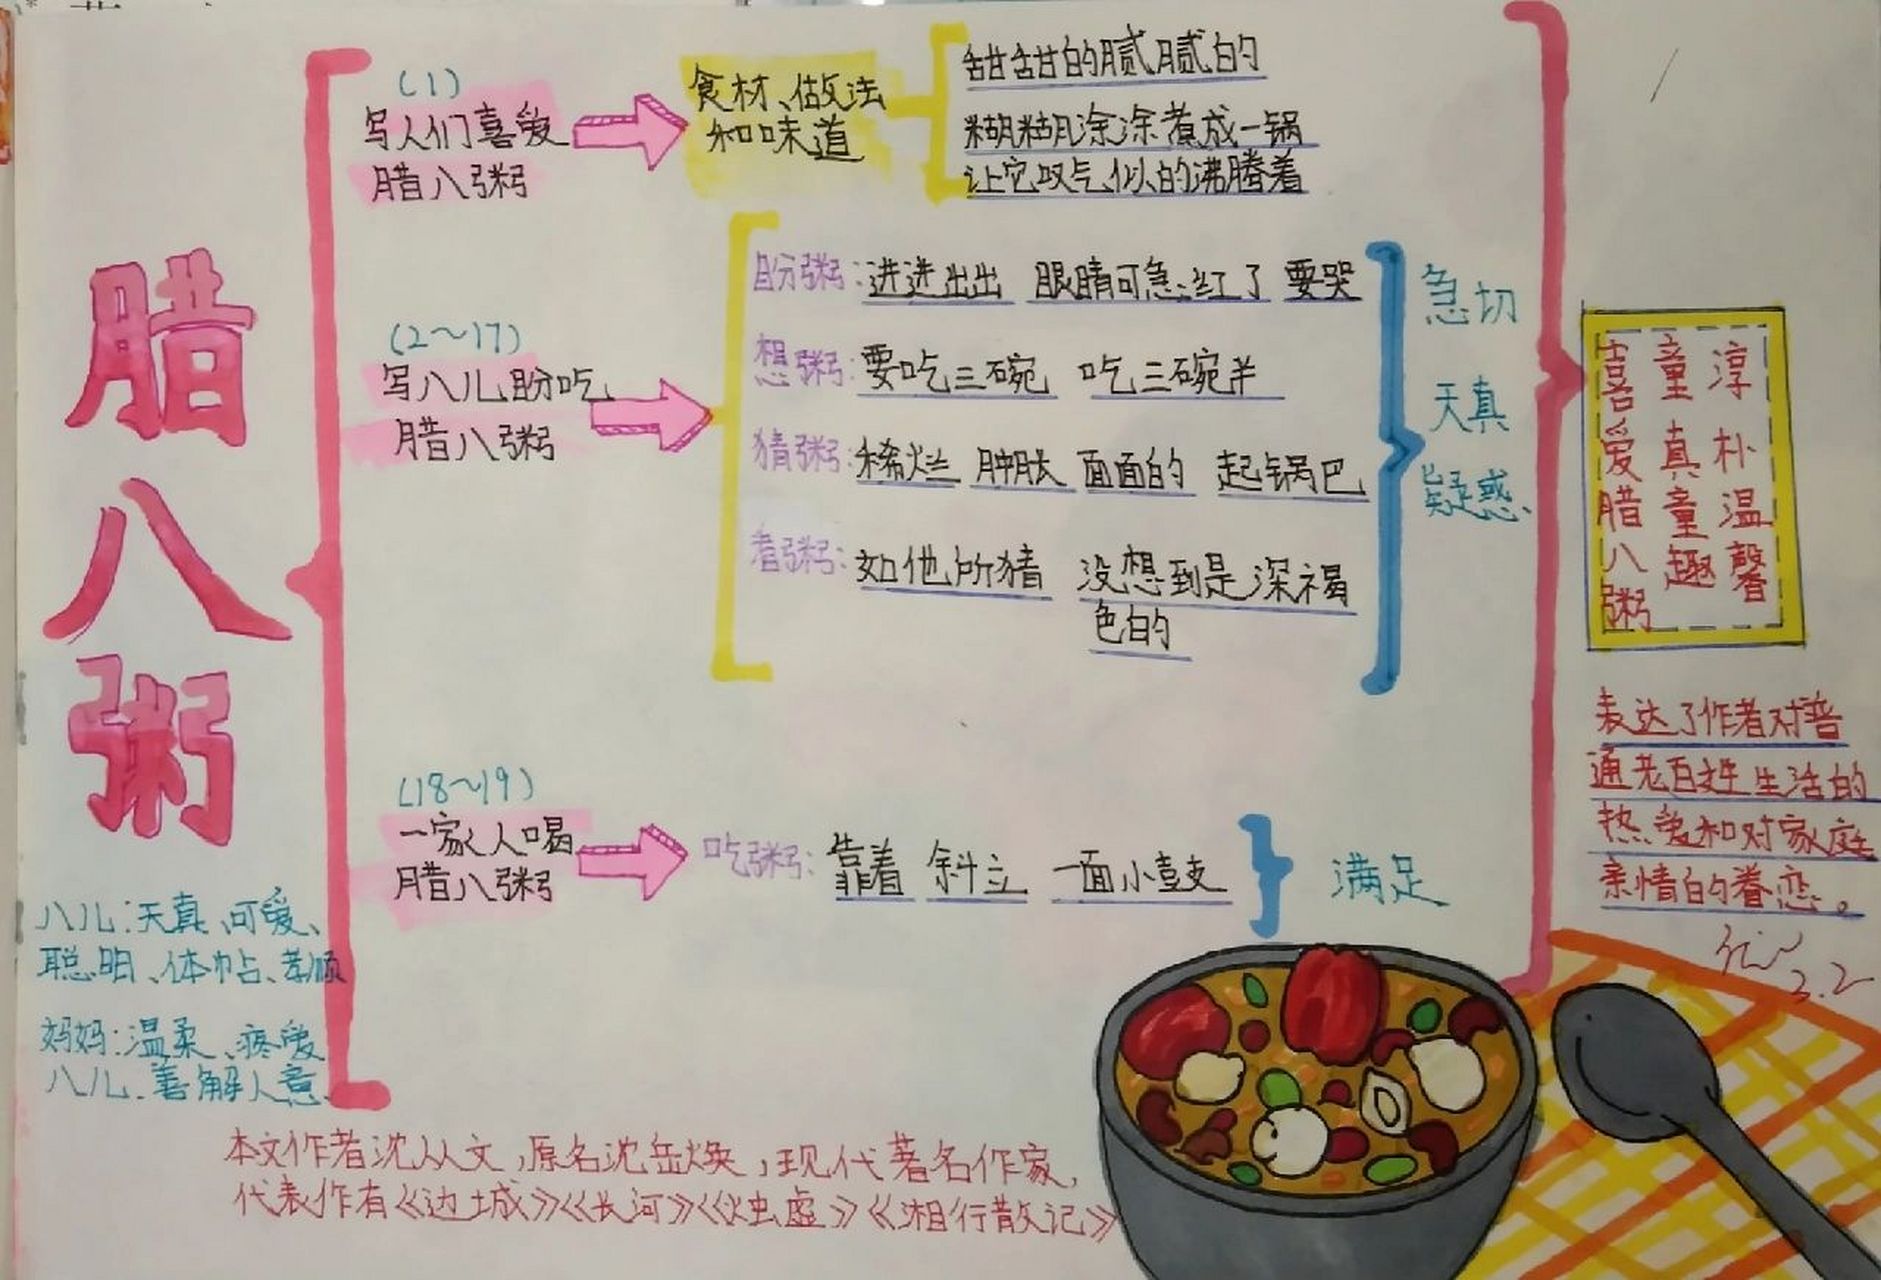 腊八粥
(1)
写人们喜爱
腊八粥
食材、做法
和味道
甜甜的腻腻的
糊糊涂涂煮成一锅
让它叹气似的沸腾着
(2～17)
写八儿盼吃
腊八粥
盼粥：进进出出 眼睛可急红了 要哭
想粥：要吃三碗 吃三碗半
猜粥：稀烂 肿胀 面面的 起锅巴
看粥：如他所猜 没想到是深褐
色的
急切
天真
疑惑
(18～19)
一家人喝
腊八粥
吃粥：靠着 斜立 一面小鼓
满足
喜爱腊八粥
童真童趣
淳朴温馨
表达了作者对普
通老百姓生活的
热爱和对家庭
亲情的眷恋。
2.2
八儿：天真、可爱、
聪明、体帖、孝顺
妈妈：温柔、疼爱
八儿.善解人意.
本文作者沈从文,原名沈岳焕,现代著名作家,
代表作有《边城》《长河》《》《湘行散记》